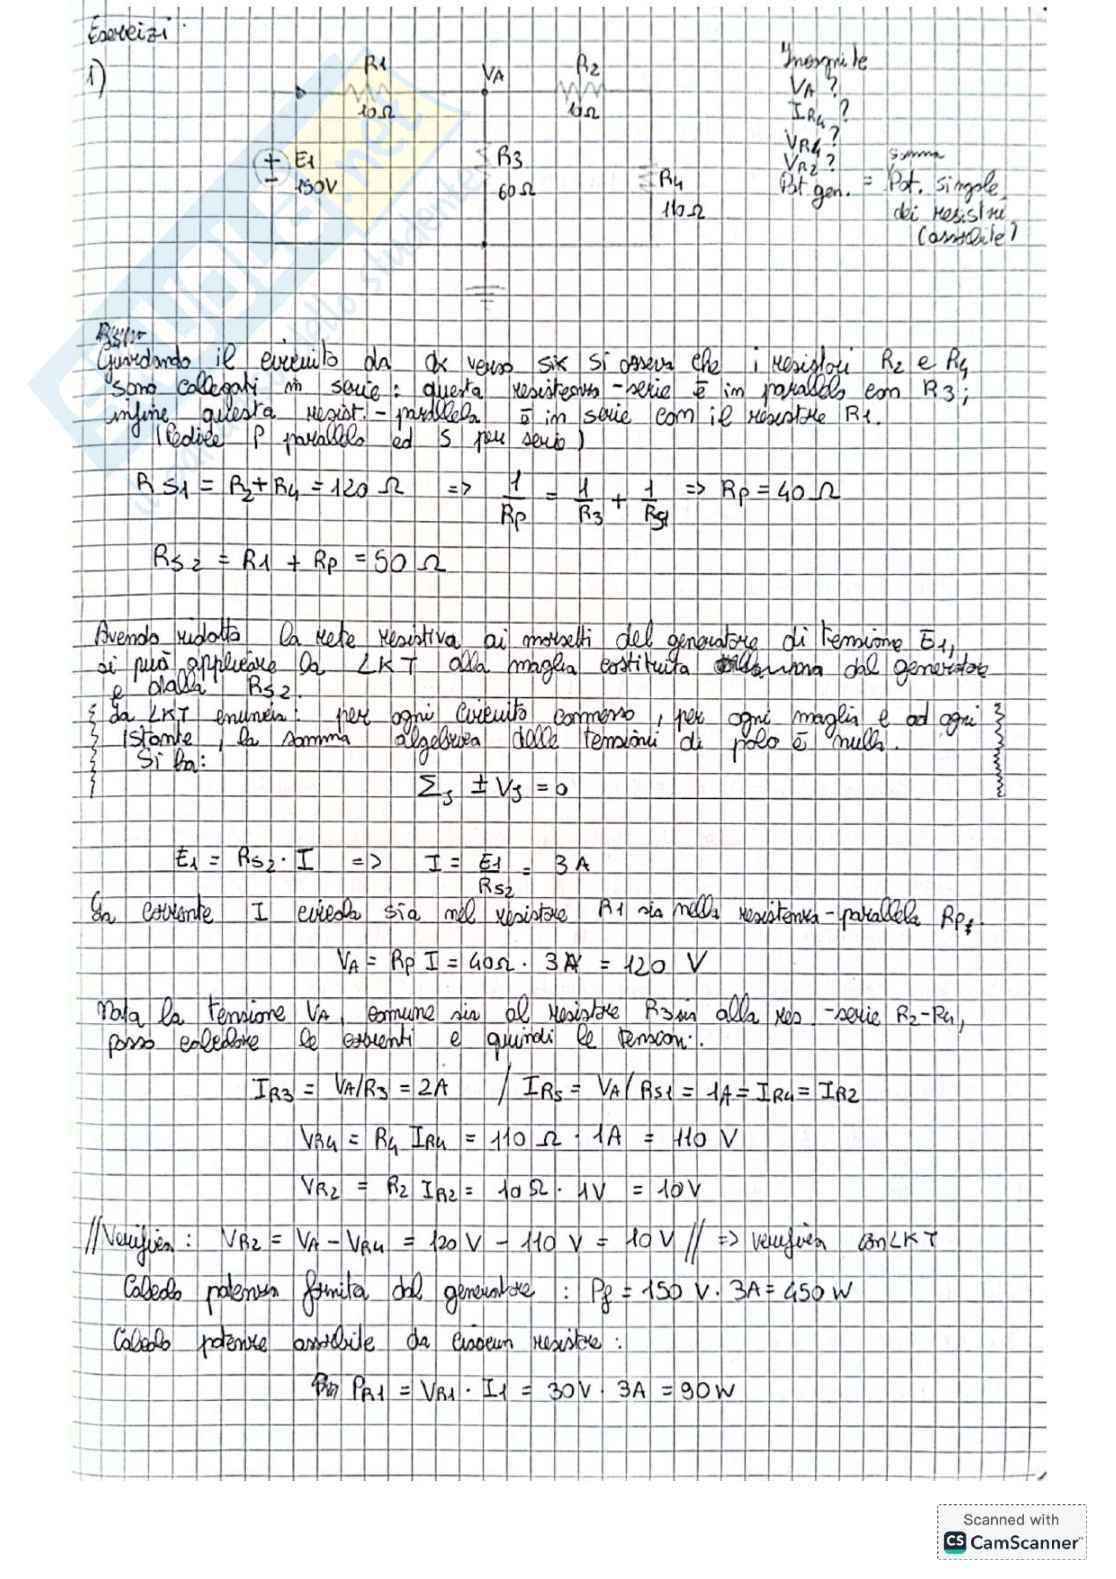 Esercizi.
1)
R1
10Ω
VA
R2
10Ω
E1
150V
R3
60Ω
R4
110Ω
Incognite
VA ?
IR4 ?
VR4 ?
VR2 ?
Pot gen. = somma Pot. singole
dei resistori
(assorbite)
Guardando il circuito da dx verso six si osserva che i resistori R2 e R4
sono collegati in serie: questa resistenza-serie è in parallelo con R3;
infine questa resist.-parallela è in serie com il resistore R1.
(Pedice P parallelo ed S per serie)
RS1 = R2+R4 = 120 Ω => 1/RP = 1/R3 + 1/RS1 => RP = 40 Ω
RS2 = R1 + RP = 50 Ω
Avendo ridotto la rete resistiva ai morsetti del generatore di tensione E1,
si può applicare la LKT alla maglia costituita dal generatore
e dalla RS2.
La LKT enuncia: per ogni circuito connesso, per ogni maglia e ad ogni
istante, la somma algebrica delle tensioni di polo è nulla.
Si ha:
Σ ± V = 0
E1 = RS2 · I => I = E1/RS2 = 3 A
La corrente I circola sia nel resistore R1 sia nella resistenza-parallela RP.
VA = RP I = 40Ω · 3A = 120 V
Nota la tensione VA, comune sia al resistore R3 sia alla res.-serie R2-R4,
posso calcolare le correnti e quindi le tensioni.
IR3 = VA/R3 = 2A / IRS = VA/RS1 = 1A = IR4 = IR2
VR4 = R4 IR4 = 110 Ω · 1A = 110 V
VR2 = R2 IR2 = 10Ω · 1V = 10V
//Verifica: VR2 = VA - VR4 = 120 V - 110 V = 10V // => verifica con LKT
Calcolo potenza fornita dal generatore: Pf = 150 V · 3A = 450 W
Calcolo potenze assorbite da ciascun resistore:
PR1 = VR1 · I1 = 30V · 3A = 90W
Scanned with
CS CamScanner